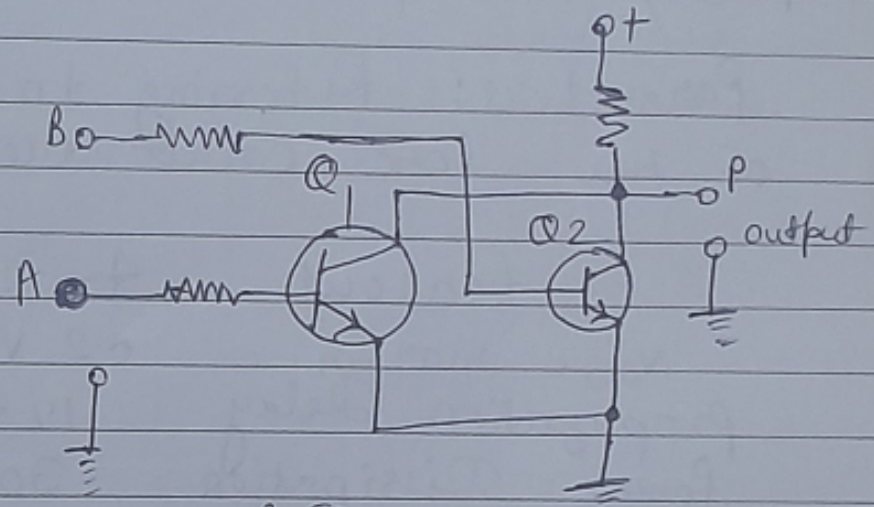 +
B
Q
P
Q2
output
A